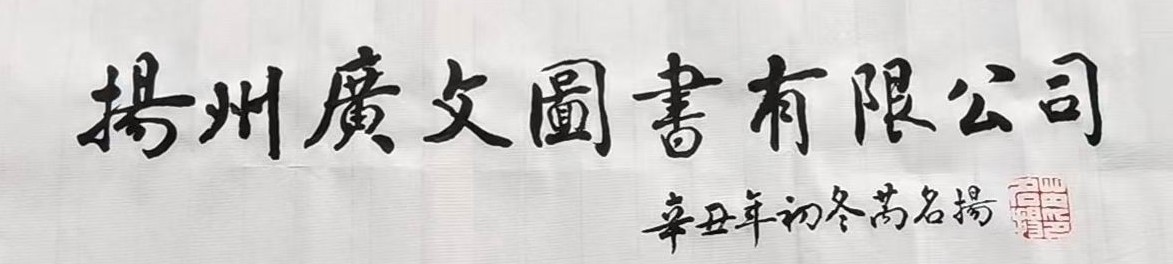 揚州廣文圖書有限公司
辛丑年初冬萬名揚